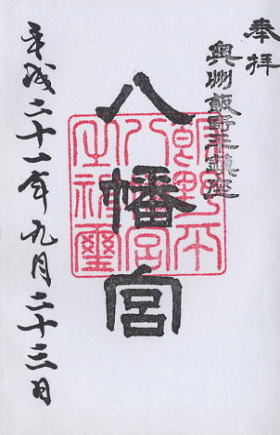 奉拝
奥州飯野平鎮座
八幡宮
飯野平
八幡宮
之神璽
平成二十一年九月二十三日